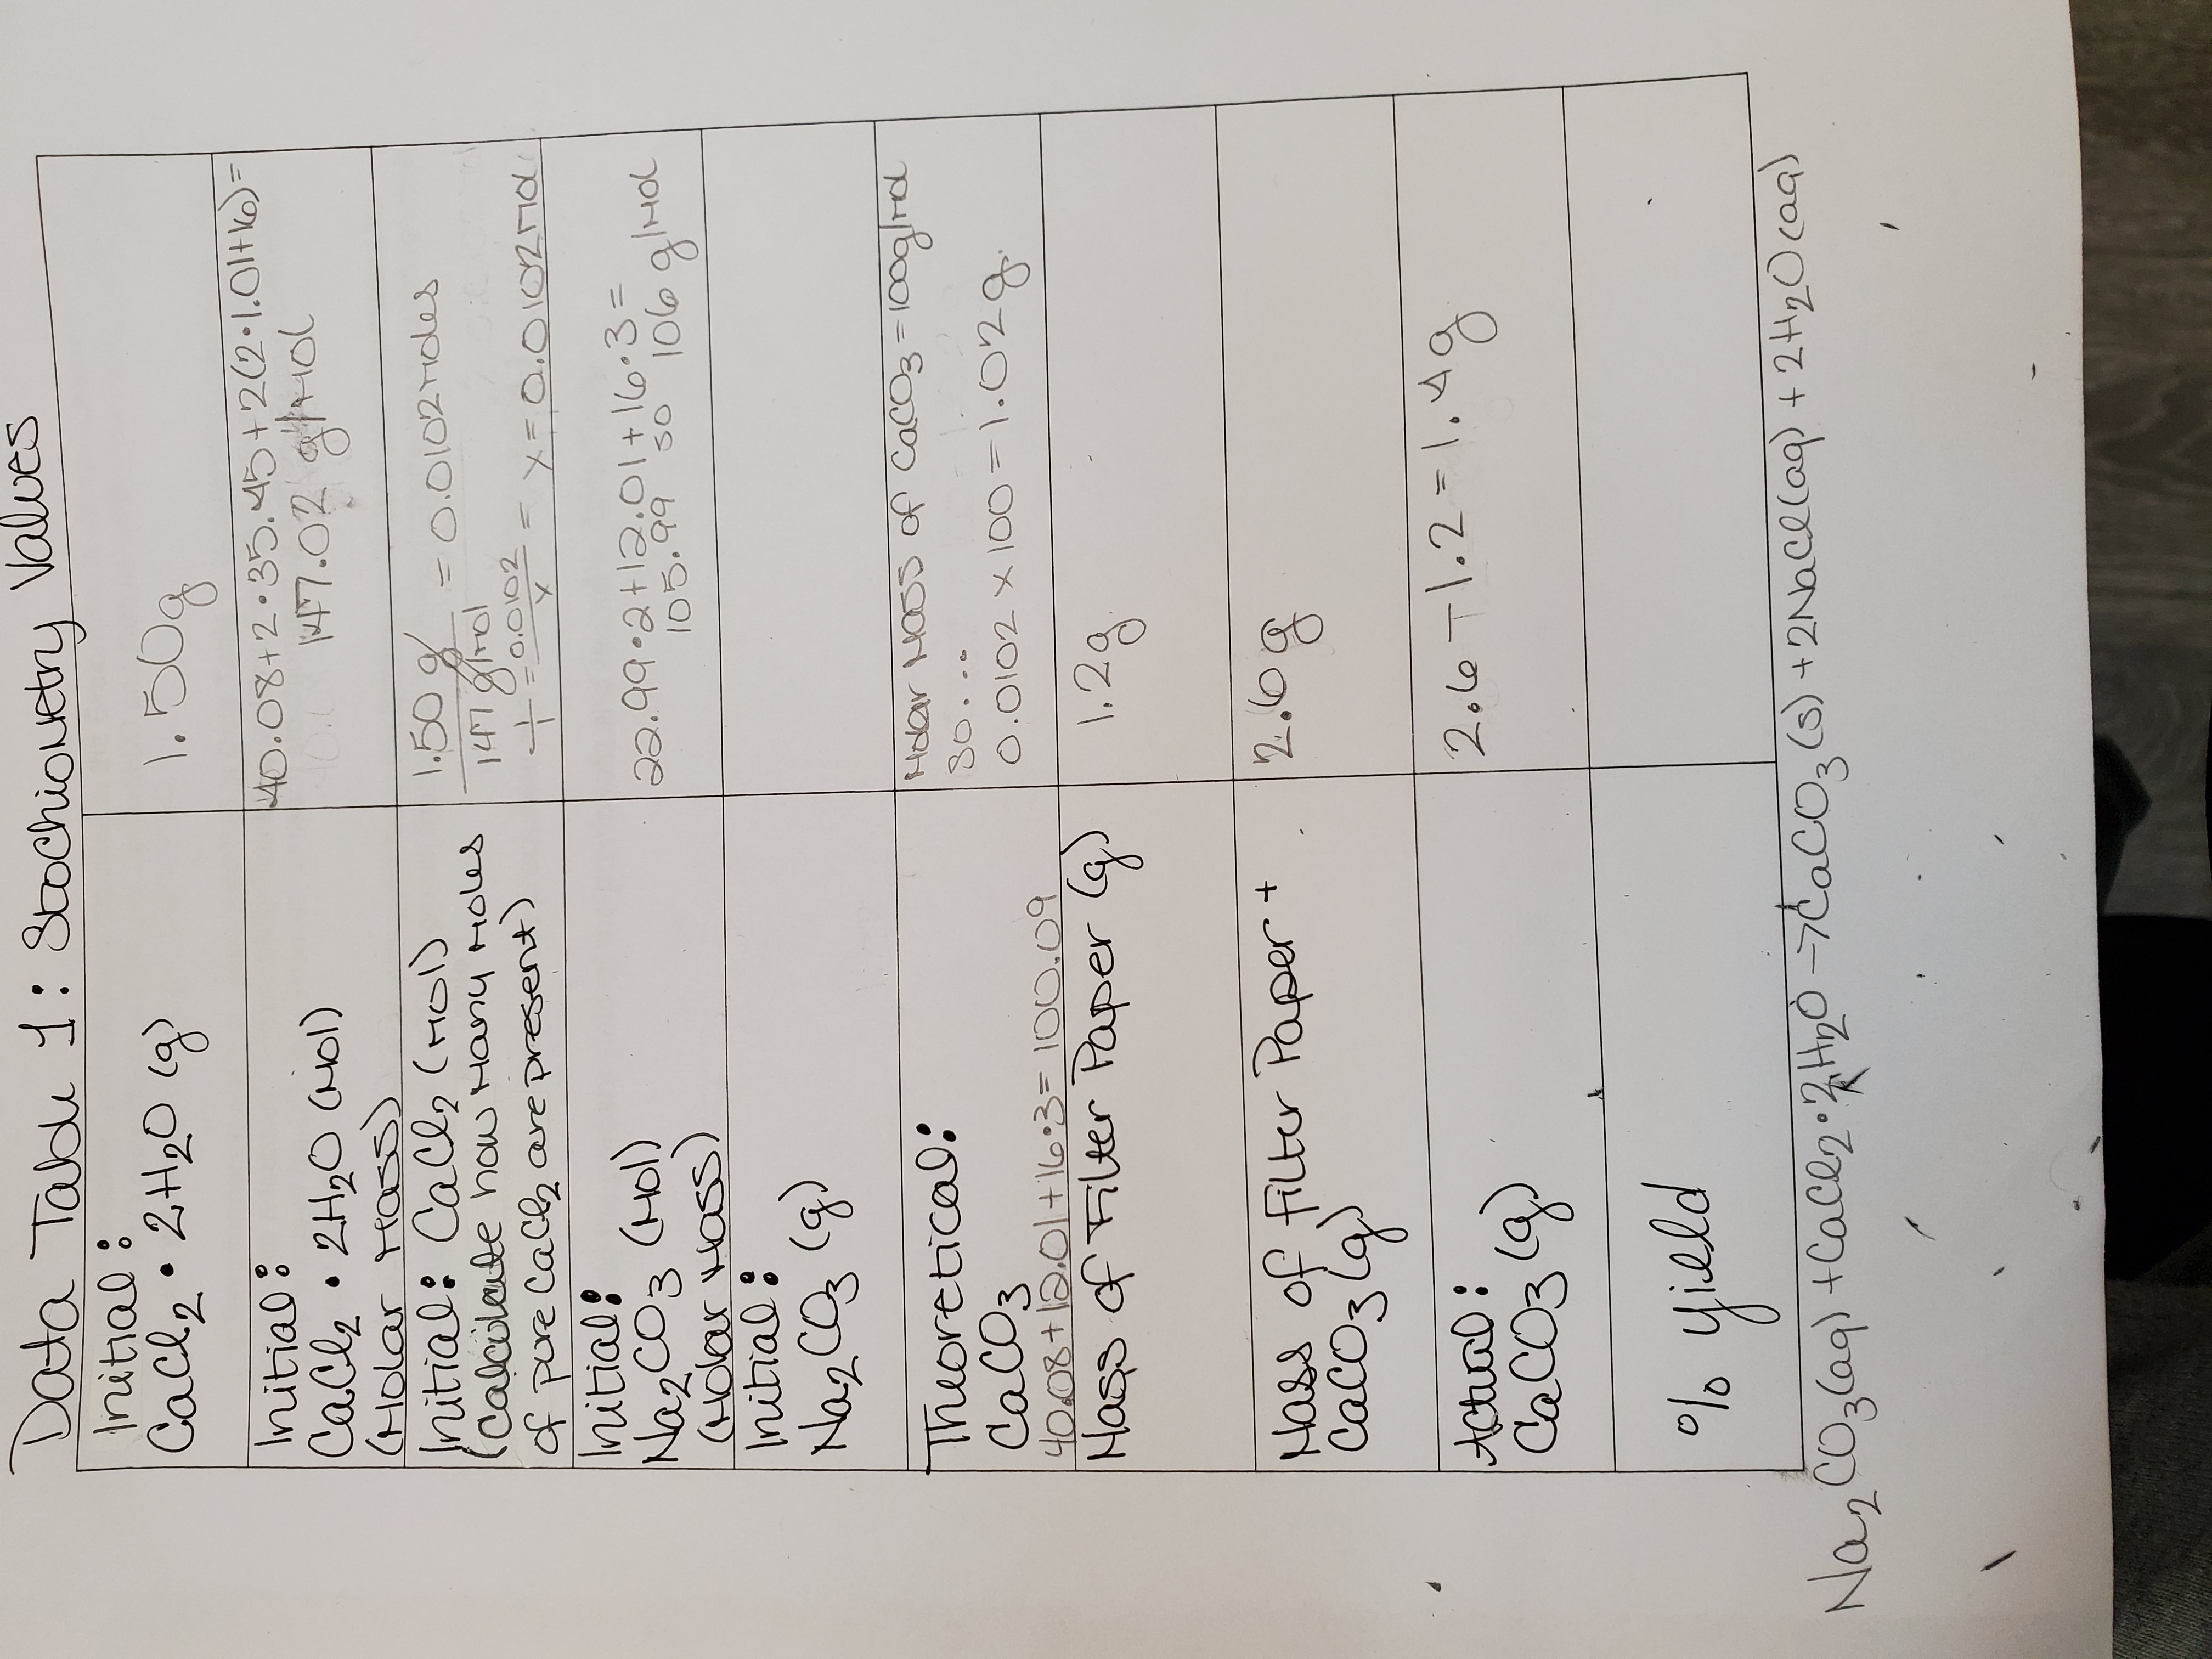 Data Table 1: Stochiometry Values
Initial:
CaCl2 • 2H2O (g)
1.50g
Initial:
CaCl2 • 2H2O (Mol)
(Molar Mass)
40.08+2•35.45+2(2•1.01+16)=
147.02 g/Mol
Initial: CaCl2 (Mol)
(Calculate how Many Moles
of pure CaCl2 are present)
1.50 g
147 g/Mol
= 0.0102 Moles
1/1 = 0.0102/x = x = 0.0102 Mol
Initial:
Na2CO3 (Mol)
(Molar Mass)
22.99•2+12.01+16•3=
105.99 so 106 g/Mol
Initial:
Na2CO3 (g)
Theoretical:
CaCO3
40.08+12.01+16•3=100.09
Molar Mass of CaCO3=100g/Mol
so...
0.0102 x 100 = 1.02g.
Mass of Filter Paper (g)
1.2g
Mass of Filter Paper +
CaCO3 (g)
2.6g
Actual:
CaCO3 (g)
2.6-1.2=1.4g
% Yield
Na2CO3(aq)+CaCl2•2H2O→CaCO3(s)+2NaCl(aq)+2H2O(aq)